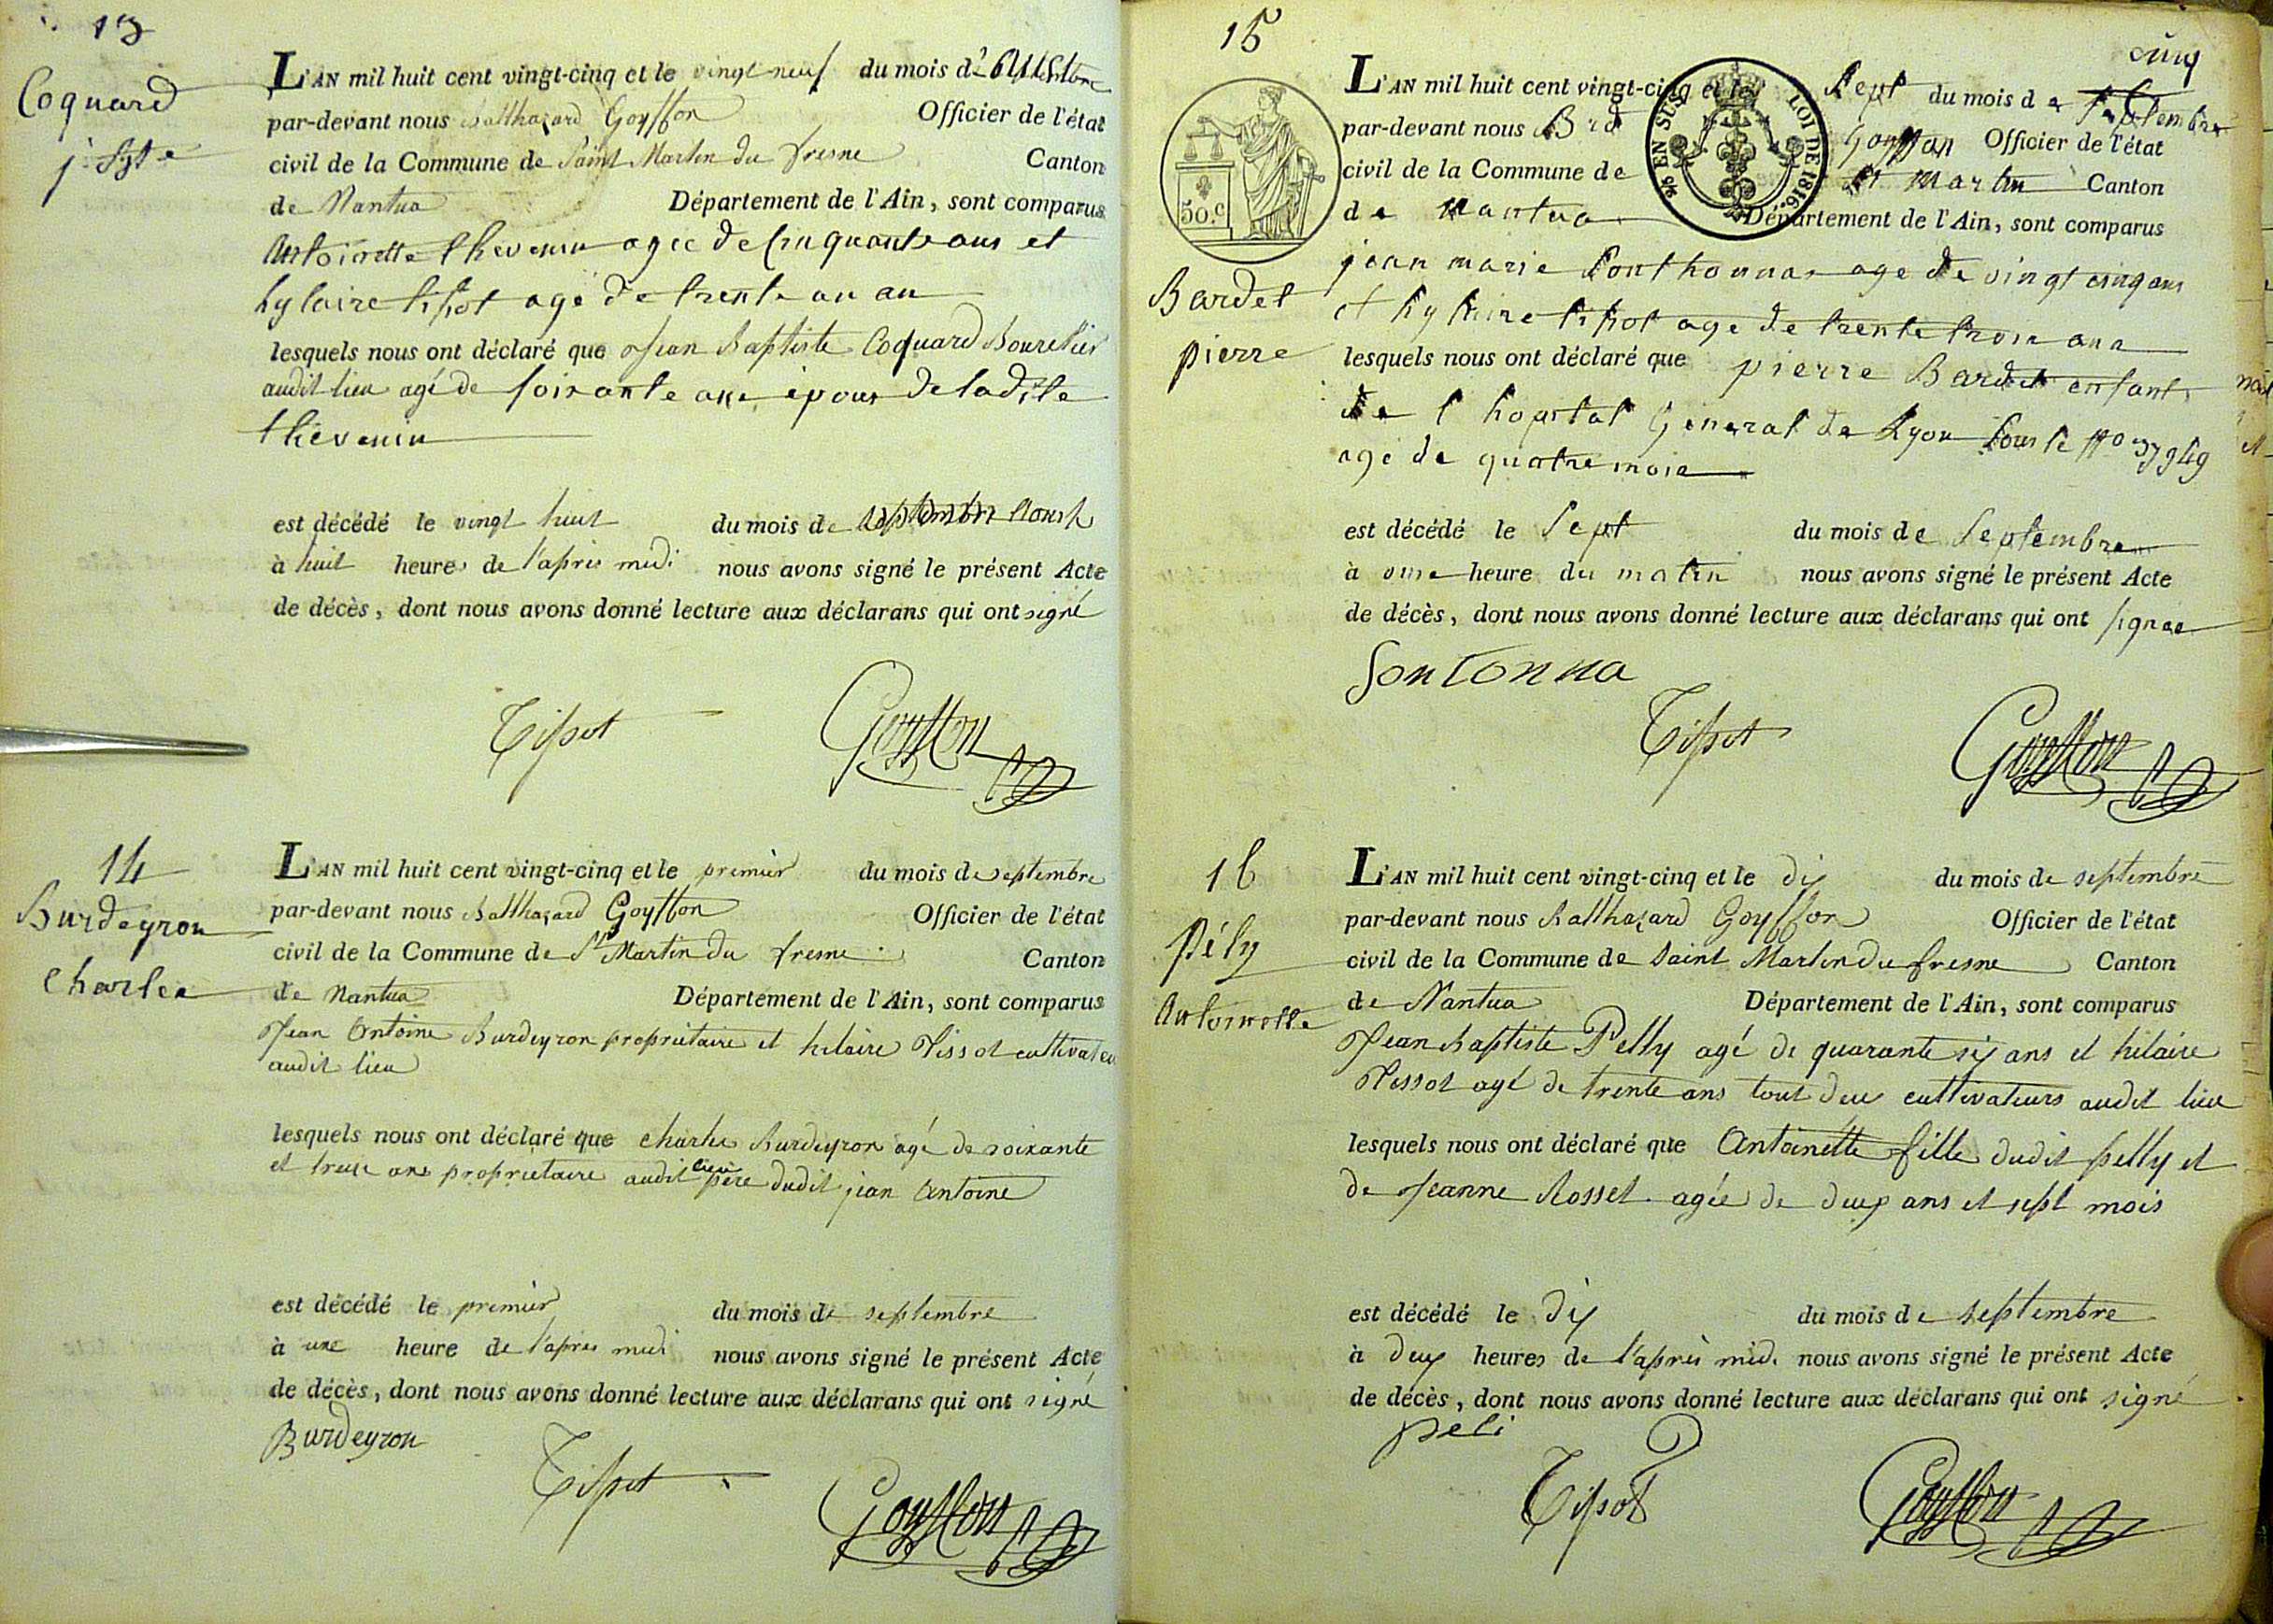 13
Coquard
j. Bste
L'AN mil huit cent vingt-cinq et le vingt neuf du mois d'
par-devant nous Balthazard Goyffon Officier de l'état
civil de la Commune de Saint Martin du fresne Canton
de Nantua Département de l'Ain, sont comparus
Antoinette thevenin agee de Cinquante ans et
hylaire tissot agé de trente un an
lesquels nous ont déclaré que Jean Baptiste Coquard Bourelier
audit lieu agé de soixante ans époux de ladite
thévenin
est décédé le vingt huit du mois de septembre Aoust
à huit heures de l'après midi nous avons signé le présent Acte
de décès, dont nous avons donné lecture aux déclarans qui ont signé
Tissot Goyffon
14
Burdeyron
Charles
L'AN mil huit cent vingt-cinq et le premier du mois de septembre
par-devant nous Balthazard Goyffon Officier de l'état
civil de la Commune de St Martin du fresne Canton
de Nantua Département de l'Ain, sont comparus
Jean Antoine Burdeyron propriétaire et hilaire Tissot cultivateur
audit lieu
lesquels nous ont déclaré que charles Burdeyron agé de soixante
et treize ans propriétaire audit lieu père dudit jean Antoine
est décédé le premier du mois de septembre
à une heure de l'après midi nous avons signé le présent Acte
de décès, dont nous avons donné lecture aux déclarans qui ont signé
Burdeyron
Tissot Goyffon
cinq
15
50.c
EN SUS
LOI DE 1816.
Bardet
pierre
L'AN mil huit cent vingt-cinq et le Sept du mois de Septembre
par-devant nous Goyffon Officier de l'état
civil de la Commune de St Martin Canton
de Nantua Département de l'Ain, sont comparus
jean marie Sonthonnas age de vingt cinq ans
et hylaire tissot age de trente trois ans
lesquels nous ont déclaré que pierre Bardet enfant
de l'hopital General de Lyon sous le no 37949
agé de quatre mois
est décédé le Sept du mois de Septembre
à onze heure du matin nous avons signé le présent Acte
de décès, dont nous avons donné lecture aux déclarans qui ont signee
Sontonna
Tissot Goyffon
16
Pély
Antoinette
L'AN mil huit cent vingt-cinq et le dix du mois de septembre
par-devant nous Balthazard Goyffon Officier de l'état
civil de la Commune de Saint Martin du fresne Canton
de Nantua Département de l'Ain, sont comparus
Jean Baptiste Pelly agé de quarante six ans et hilaire
Tissot agé de trente ans tout deux cultivateurs audit lieu
lesquels nous ont déclaré que Antoinette fille dudit pelly et
de Jeanne Rosset agée de deux ans et sept mois
est décédé le dix du mois de septembre
à deux heures de l'après midi nous avons signé le présent Acte
de décès, dont nous avons donné lecture aux déclarans qui ont signé
peli
Tissot Goyffon